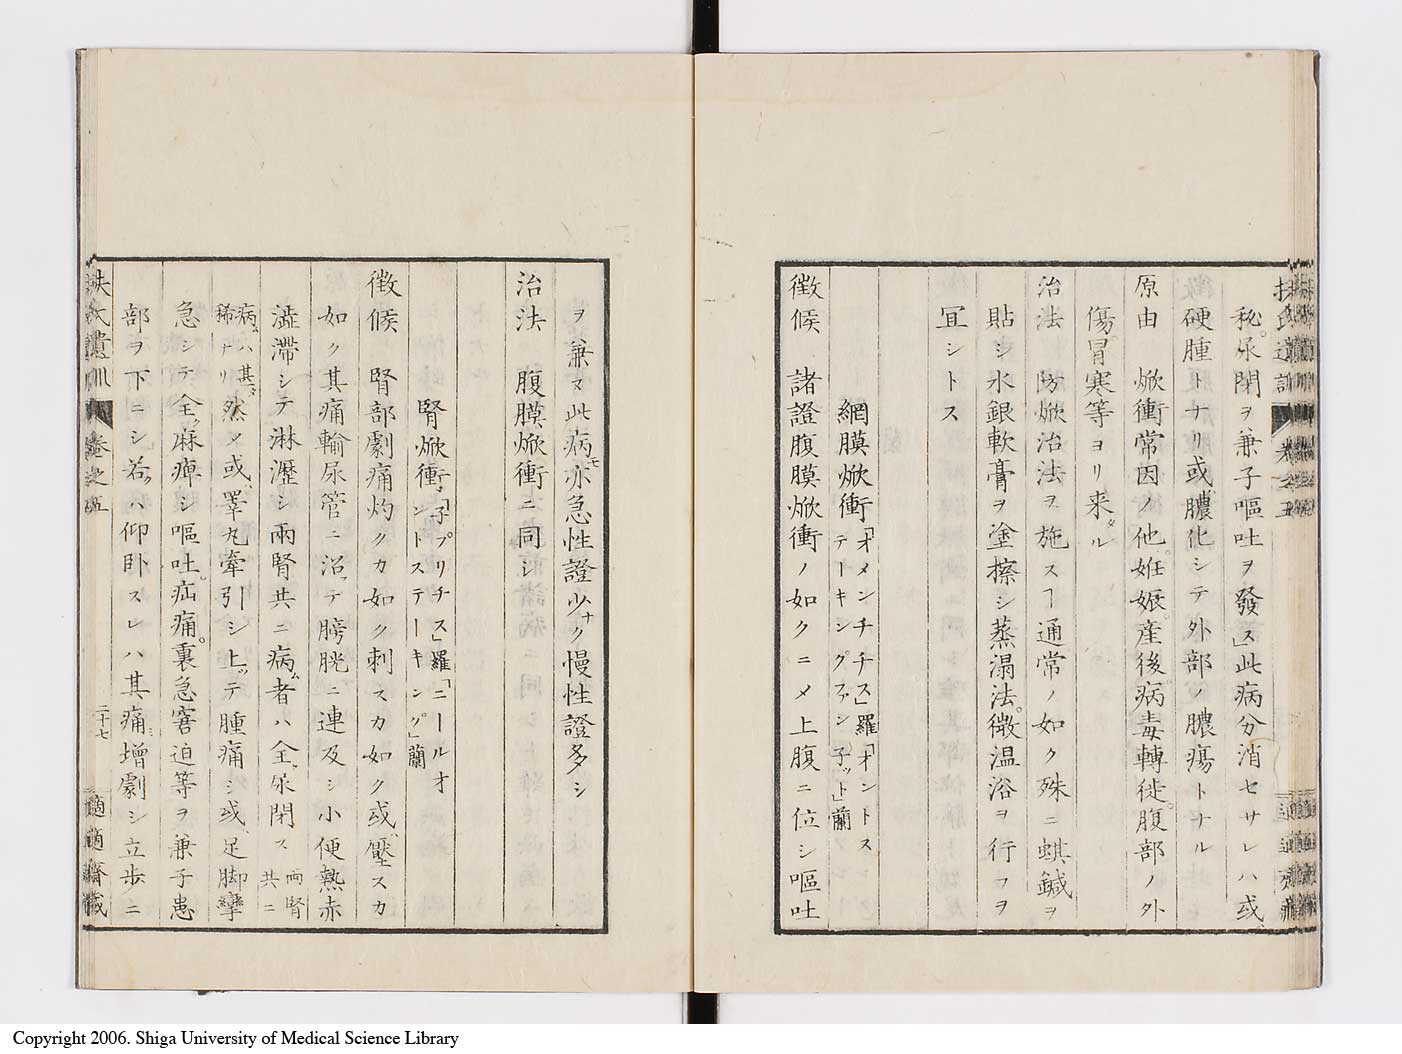 秘。尿閉ヲ兼子嘔吐ヲ發ス」此病分消セサレハ或、
硬腫トナリ或膿化シテ外部ノ膿瘍トナル
原由　焮衝常因ノ他。姙娠。産後。病毒轉徙。腹部ノ外
傷。冒寒等ヨリ来タル
治法　防焮治法ヲ施スヿ通常ノ如ク殊ニ蜞鍼ヲ
貼シ水銀軟膏ヲ塗擦シ蒸溻法。微温浴ヲ行フヲ
冝シトス
網膜焮衝「オメンチチス」羅「オントス
テーキングファン子ット」蘭
徴候　諸證腹膜焮衝ノ如クニメ上腹ニ位シ嘔吐
ヲ兼ヌ此病モ亦急性證少ナク慢性證多シ
治法　腹膜焮衝ニ同シ
腎焮衝「子プリチス」羅「ニールオ
ントステーキング」蘭
徴候　腎部劇痛灼クカ如ク刺スカ如ク或、壓スカ
如ク其痛輸尿管ニ沿ッテ膀胱ニ連及シ小便熱赤
澁滯シテ淋瀝シ兩腎共ニ病ム者ハ全ク尿閉ス 両腎共ニ
病ムハ其タ稀ナリ 然メ或、睪丸牽引シ上ッテ腫痛シ或、足脚攣
急シテ全ク麻痺シ嘔吐。疝痛。裏急窘迫等ヲ兼子患
部ヲ下ニシ若クハ仰臥スレハ其痛増劇シ立歩ニ
扶氏遺訓　巻之五　二十七　適適齋藏